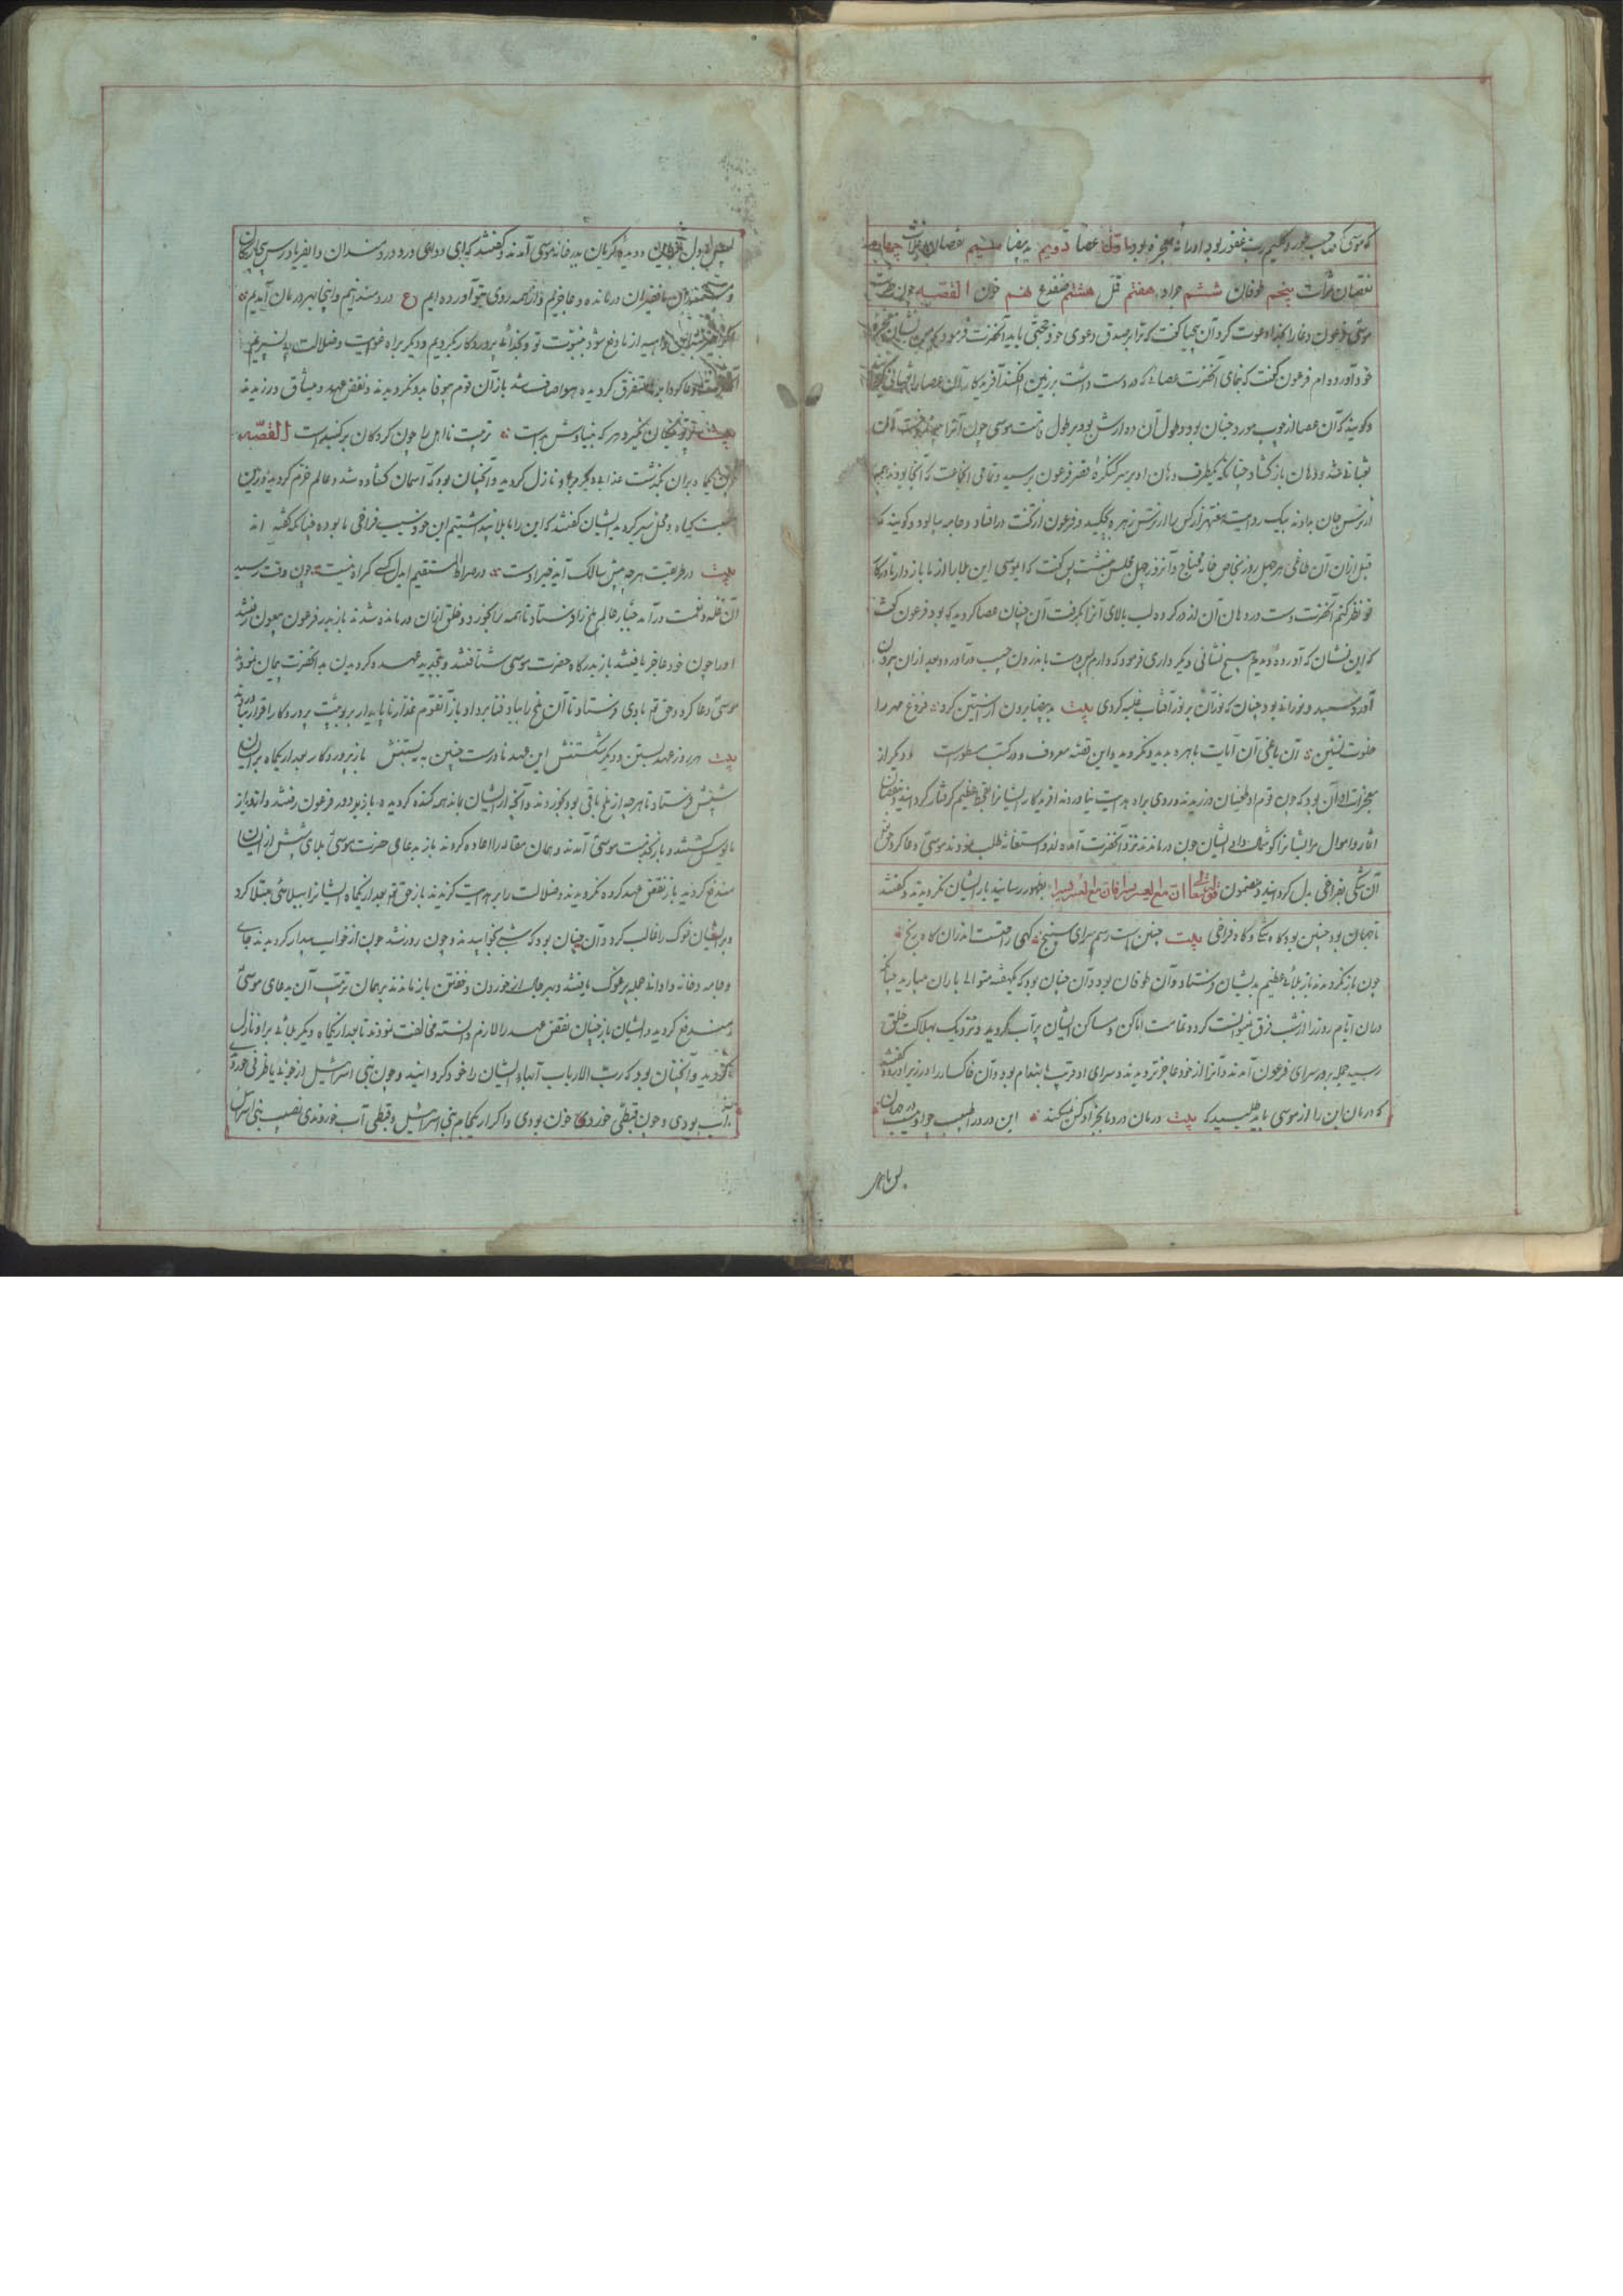 که موسی که صاحب طور و کلیم رب غفور بود او را نه معجزه بود اول عصا دویم ید بیضا سیم نقصان غلات چهارم
نقصان ثمرات پنجم طوفان ششم جراد هفتم قمل هشتم ضفدع نهم خون القصه چون حضرت
موسی فرعون دغا را بخدا دعوت کرد آن بیحیا گفت که ترا بر صدق دعوی خود حجتی باید آنحضرت فرمود که
خود آورده ام فرعون گفت که بنمای آنحضرت عصائی که در دست داشت بر زمین افکند آفریدگار آن عصا را ثعبانی
و گویند که آن عصا از چوب مورد جنان بود و طول آن ده ارش بود بر طول قامت موسی چون آنرا آن
ثعبانی شد و دهان باز گشاد چنانکه یکطرف دهان او بر سر کنگره قصر فرعون برسید و تمامی انجماعت که آنجا بودند همه
از ترس جان بدادند بیک روایت هزار کس را از ترس زهره بچکید و فرعون از تخت درافتاد و جامه بیالود و گویند که
قبل ازان آن طاغی هر چهل روز بخاص خانه محتاج و آنروز چهل مجلس نشست پس گفت که ای موسی این بلا را از ما باز دار تا در کار
خود نظر کنم آنحضرت دست در دهان آن اژدر کرده لب بالای آنرا بگرفت آن چنان عصا گردید که بود فرعون گفت
که این نشان که آورده دیدیم هیچ نشانی دیگر داری فرمود که دارم پس دست باندرون جیب درآورد و بعد ازان بیرون
آورد سفید و نورانی بود چنان که نور آن بر نور آفتاب غلبه کردی بیت ید بیضا برون از آستین کرد فروغ مهر را
خلوت نشین آن یاغی آن آیات باهره بدید و نگروید و این قصه معروف و در کتب مسطور است و دیگر از
معجزات او آن بود که چون قوم او طغیان ورزیدند و روی براه هدایت نیاوردند آفریدگار ایشانرا بقحط عظیم گرفتار گردانید و بنقصان
اثمار و اموال مر ایشانرا گوشمال داد ایشان چون درماندند نزد آنحضرت آمده لب و استغاثه طلب نمودند موسی دعا کرد حق تع
آن تنگی بفراخی بدل گردانید و مضمون قوله تعالی ان مع العسر یسرا فان مع العسر یسرا بظهور رسانید باز ایشان نگرویدند و گفتند
تا جهان بود چنین بود گاه تنگی و گاه فراخی بیت چنین است رسم سرای سپنج گهی راحتست اندران گاه رنج
چون باز نگرویدند باز بلائی عظیم بدیشان فرستاد و آن طوفان بود و آن چنان بود که یکهفته متوالی باران میبارید چنانکه
دران ایام روز را از شب فرق نمیتوانست کرد و تمامت اماکن و مساکن ایشان پرآب گردید و نزدیک بهلاکت خلق
رسید جمله بدر سرای فرعون آمدند و آنرا از خود عاجزتر دیدند و سرای او قریب بانهدام بود و آن خاکسار را در زیر آورده گفتند
که درمان این را از موسی باید طلبید که بیت درمان درد ما بجز او کس نمیکند این درد را طبیب جز او نیست در جهان
پس با دل
پس با دل بریان و دیده گریان بدر خانه موسی آمدند و گفتند که ای دوای درد دردمندان و ای فریادرس بیچارگان
و مستمندان ما فقیران درمانده و عاجزیم و از همه روی بتو آورده ایم ع دردمندانیم و اینجا بهر درمان آمدیم
از ما دفع شود بنبوت تو و بخدائی پروردگار بگرویم و دیگر براه غوایت و ضلالت پی نسپریم
آنحضرت دعا کرد ابر متفرق گردیده هوا صاف شد باز آن قوم بیوفا بدو نگرویدند و نقض عهد و میثاق ورزیدند
بیت پرتو نیکان نگیرد هر که بنیادش بد است تربیت نااهل را چون گردکان بر گنبد است القصه
چون یکماه بران بگذشت عذابی دیگر بر او نازل گردید و آنچنان بود که آسمان گشاده شد و عالم خرم گردید و زمین
گیاه و نخل سبز گردید ایشان گفتند که این را ما بلا پنداشتیم این خود سبب فراخی ما بوده چنانکه گفته اند
بیت در طریقت هر چه پیش سالک آید خیر اوست در صراط المستقیم ای دل کسی گمراه نیست چون وقت رسید
آن غله و نعمت درآمد جبار عالم ملخ را فرستاد تا همه را بخورد و خلق ازان درمانده شدند باز بدر فرعون ملعون رفتند
او را چون خود عاجز یافتند باز بدرگاه حضرت موسی شتافتند و بتجدید عهده گرویدن به آنحضرت پیمان نمودند
موسی دعا کرد و حق تع بادی فرستاد تا آن ملخ را بباد فنا برداد باز آنقوم غدار ناپایدار بربوبیت پروردگار اقرار نیاوردند
بیت هر روز عهد بستن و دیگر شکستنش این عهد نادرست چنین به نبستنش باز پروردگار بعد از یکماه بر ایشان
شپش فرستاد تا هر چه از ملخ باقی بود بخوردند و آنچه از ایشان بماند همه گنده گردیده باز بر در فرعون رفتند و ازو باز
مایوس گشتند و باز بخدمت موسی آمدند و همان مقاله را اعاده کردند باز بدعای حضرت موسی بلای شپش از ایشان
مندفع گردید باز نقض عهد کرده نگرویدند و ضلالت را بر هدایت گزیدند باز حق تع بعد از یکماه ایشانرا ببلائی مبتلا کرد
و بر ایشان غوک را غالب کرد و آن چنان بود که شبی بخوابیدند و چون روز شد چون از خواب بیدار گردیدند جای
و جامه و خانه و اوانی جمله پر غوک یافتند و بهر حال از خوردن و خفتن باز ماندند بهمان ترتیب آن بدعای موسی
مندفع گردید و ایشان باز چنان نقض عهد را لازم دانسته مخالفت نمودند تا بعد از یکماه دیگر بلائی بر او نازل
گردید و آنچنان بود که رب الارباب آبهای ایشان را خون گردانید و چون بنی اسرائیل از جوئی یا ظرفی خوردی
آب بودی و چون قبطی خوردی خون بودی و اگر از یک جام بنی اسرائیل و قبطی آب خوردندی نصیب بنی اسرائیل